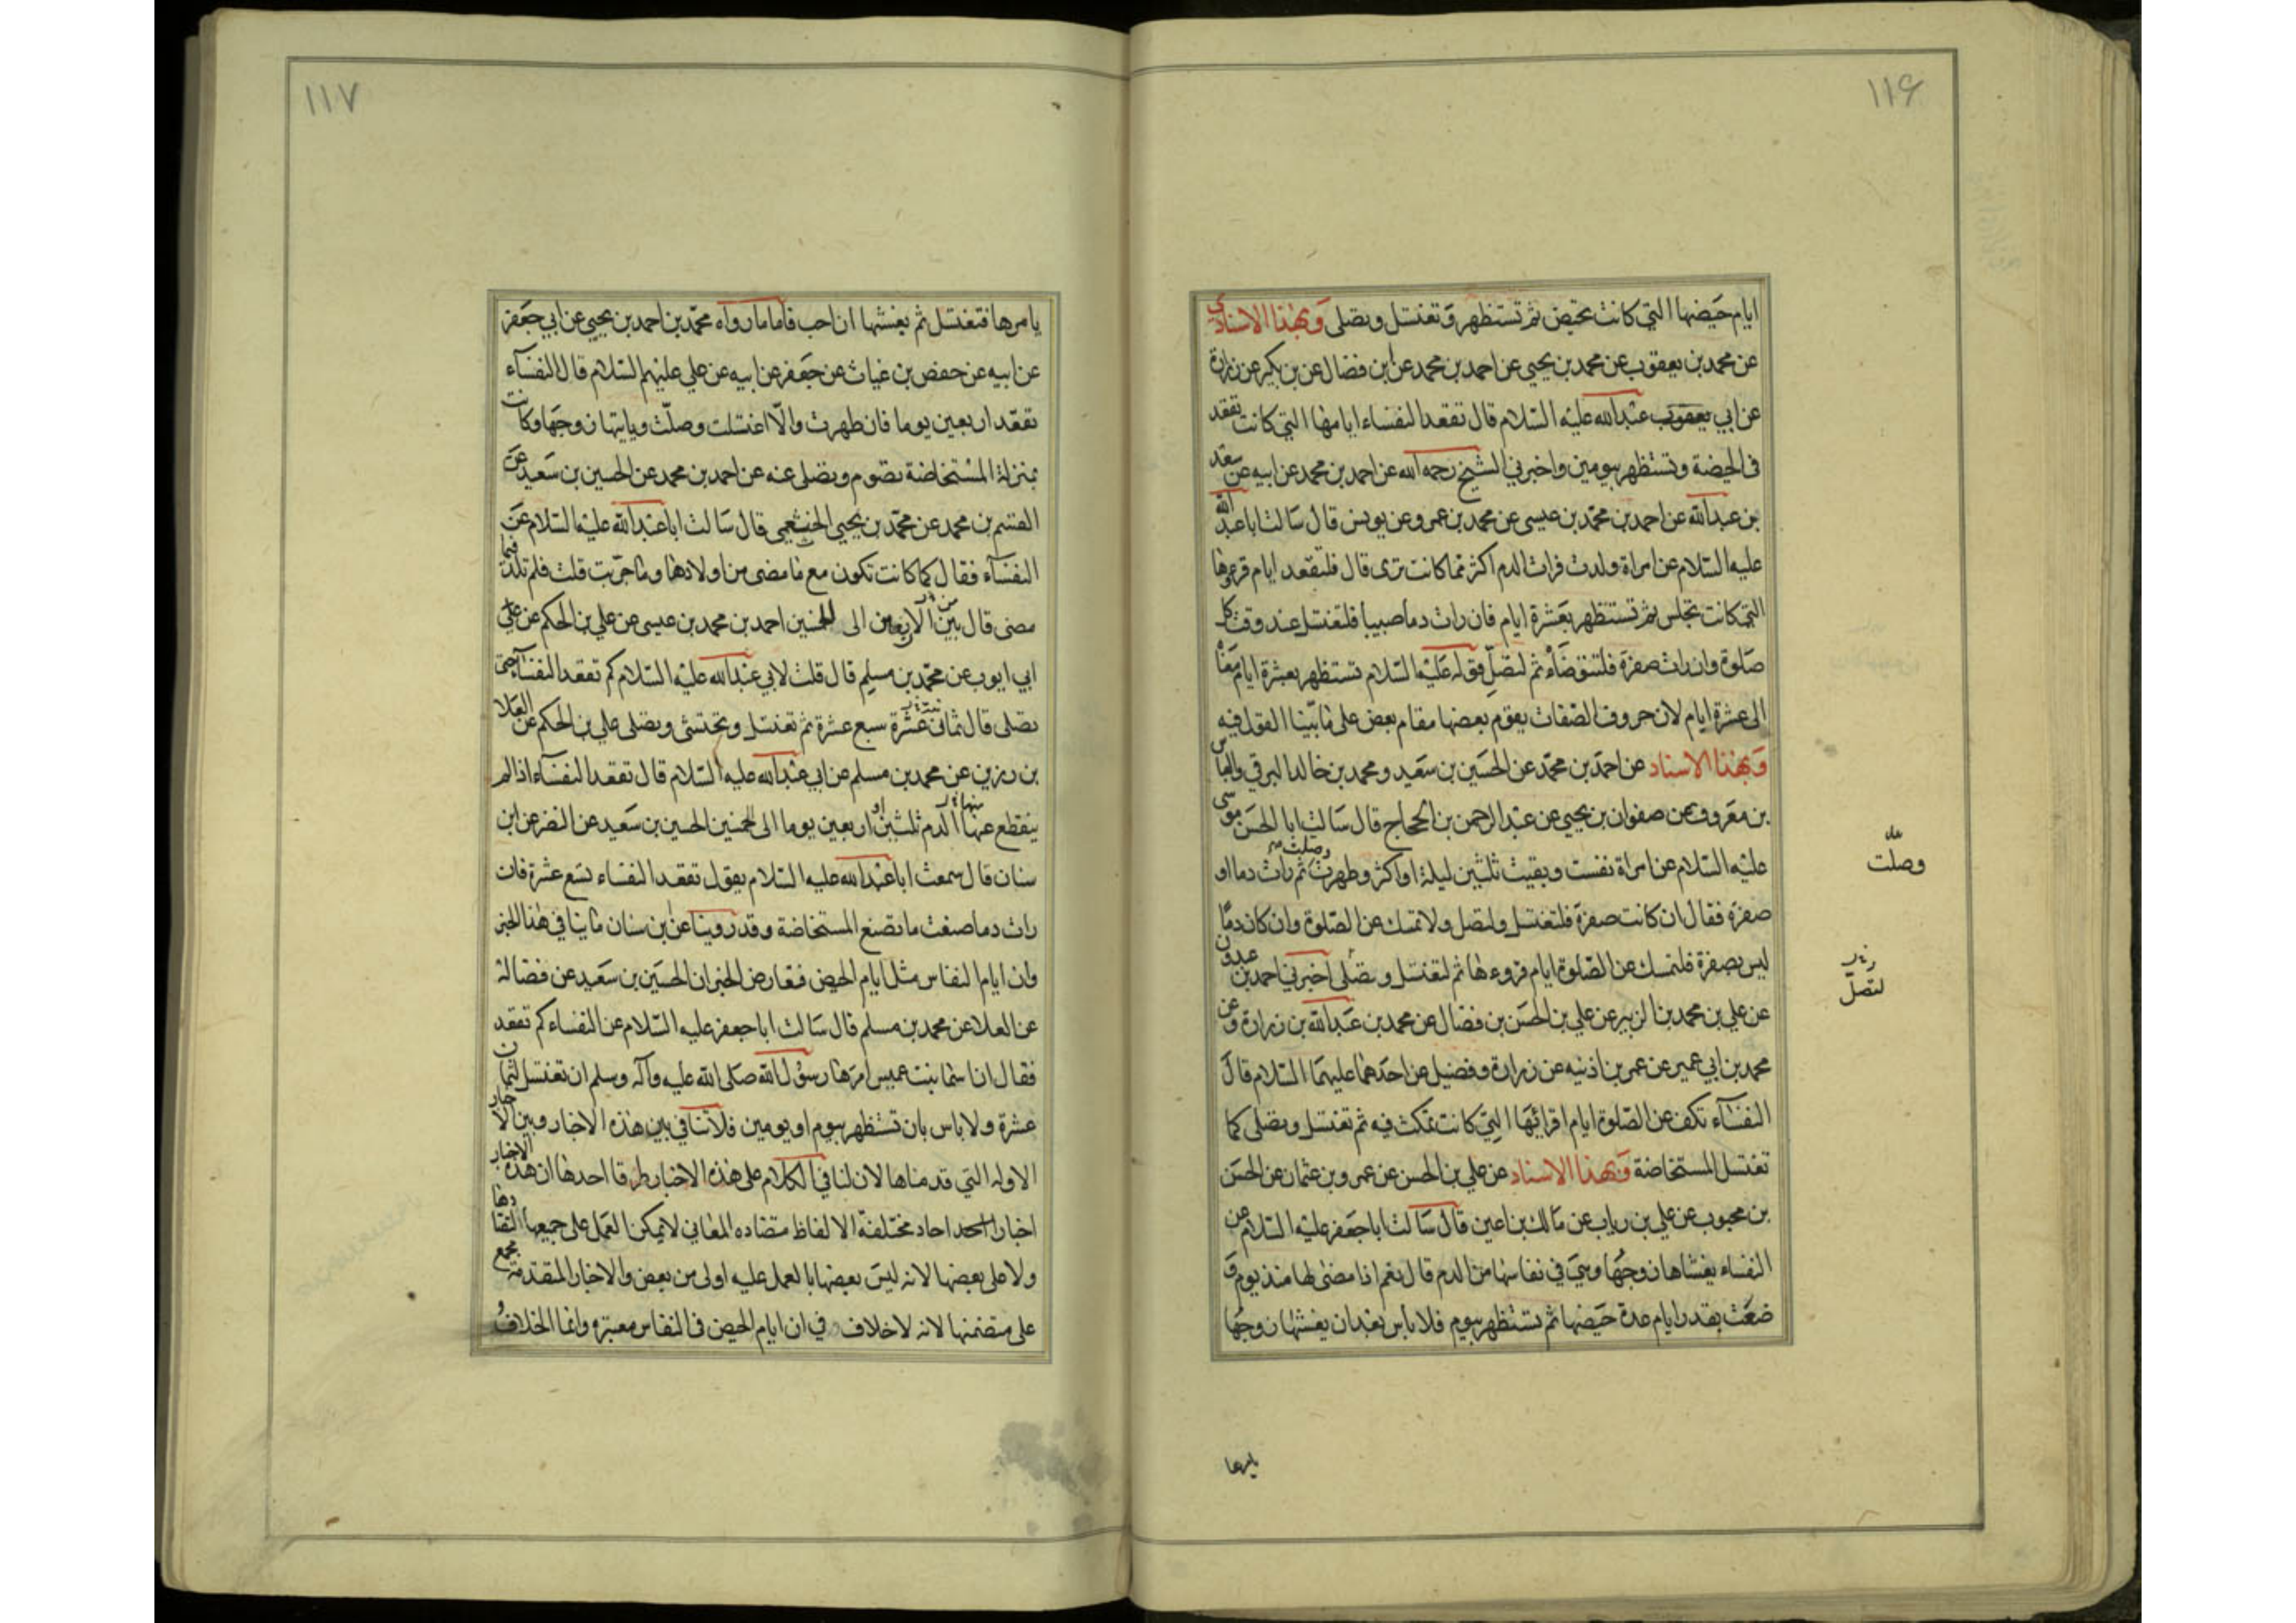 ١١۶
ايام حيضها التي كانت تحيض ثم تستظهر وتغتسل وتصلى وبهذا الاسناد
عن محمد بن يعقوب عن محمد بن يحيى عن احمد بن محمد عن ابن فضال عن بن بكير عن زرارة
عن ابي يعقوب عبدالله عليه السلام قال تقعد النفساء ايامها التي كانت تقعد
فى الحيضة وتستظهر بيومين واخبرني الشيخ رحمه الله عن احمد بن محمد عن ابيه عن سعد
بن عبدالله عن احمد بن محمد بن عيسى عن محمد بن عمرو عن يونس قال سالت ابا عبد الله
عليه السلام عن امراة ولدت فرات الدم اكثر مما كانت ترى قال فلتقعد ايام قرءها
التي كانت تجلس ثم تستظهر بعشرة ايام فان رات دما صبيبا فلتغتسل عند وقت كل
صلوة وان رات صفرة فلتتوضأ ثم لتصل قوله عليه السلام تستظهر بعشرة ايام معناه
الى عشرة ايام لان حروف الصفات يقوم بعضها مقام بعض على ما بينا القول فيه
وبهذا الاسناد عن احمد بن محمد عن الحسين بن سعيد ومحمد بن خالد البرقي والعباس
بن معروف عن صفوان بن يحيى عن عبد الرحمن بن الحجاج قال سالت ابا الحسن موسى
عليه السلام عن امراة نفست وبقيت ثلثين ليلة او اكثر وطهرت وصلت ثم رات دما او
صفرة فقال ان كانت صفرة فلتغتسل ولتصل ولا تمسك عن الصلوة وان كان دمًا
ليس بصفرة فلتمسك عن الصلوة ايام قروءها ثم لتغتسل وتصلى اخبرني احمد بن عبدون
عن علي بن محمد بن الزبير عن علي بن الحسن بن فضال عن محمد بن عبدالله بن زرارة عن
محمد بن ابي عمير عن عمر بن اذنيه عن زرارة وفضيل عن احدهما عليهما السلام قال
النفساء تكف عن الصلوة ايام اقرائها التي كانت تمكث فيه ثم تغتسل وتصلى كما
تغتسل المستحاضة وبهذا الاسناد عن علي بن الحسن عن عمرو بن عثمان عن الحسن
بن محبوب عن علي بن رياب عن مالك بن اعين قال سالت ابا جعفر عليه السلام عن
النفساء يغشاها زوجها وهي في نفاسها من الدم قال نعم اذا مضى لها منذ يوم و
ضعت بقدر ايام عدة حيضها ثم تستظهر بيوم فلا باس بعد ان يغشها زوجها
وصلت
لتصل
يامرها
١١٧
يامرها فتغتسل ثم يغشها ان احب فاما ما رواه محمد بن احمد بن يحيى عن ابي جعفر
عن ابيه عن حفص بن غياث عن جعفر عن ابيه عن علي عليهم السلام قال النفساء
تقعد اربعين يوما فان طهرت والا اغتسلت وصلت وياتيها زوجها وكانت
بمنزلة المستحاضة تصوم وتصلى عنه عن احمد بن محمد عن الحسين بن سعيد عن
القسم بن محمد عن محمد بن يحيى الخثعمي قال سالت ابا عبدالله عليه السلام عن
النفساء فقال كما كانت تكون مع ما مضى من اولادها وما جربت قلت فلم تلد فيما
مضى قال بين الاربعين الى الخمسين احمد بن محمد بن عيسى عن علي بن الحكم عن
ابي ايوب عن محمد بن مسلم قال قلت لابي عبدالله عليه السلام كم تقعد النفساء حتى
تصلى قال ثماني عشرة سبع عشرة ثم تغتسل وتحتشى وتصلى علي بن الحكم عن العلا
بن رزين عن محمد بن مسلم عن ابي عبدالله عليه السلام قال تقعد النفساء اذا لم
ينقطع عنها الدم ثلثين او اربعين يوما الى الخمسين الحسين بن سعيد عن النضر عن ابن
سنان قال سمعت ابا عبدالله عليه السلام يقول تقعد النفساء تسع عشرة فان
رات دما صنعت ما تصنع المستحاضة وقد روينا عن بن سنان ما ينافي هذا الخبر
وان ايام النفاس مثل ايام الحيض فتعارض الخبران الحسين بن سعيد عن فضالة
عن العلا عن محمد بن مسلم قال سالت ابا جعفر عليه السلام عن النفساء كم تقعد
فقال ان اسما بنت عميس امرها رسول الله صلى الله عليه وآله وسلم ان تغتسل لثمان
عشرة ولا باس بان تستظهر بيوم او يومين فلا تنافي بين هذه الاخبار وبين الاخبار
الاوله التي قدمناها لان لنا في الكلام على هذه الاخبار طرقا احدها ان هذه الاخبار
اخبار احاد مختلفة الالفاظ متضاده المعاني لا يمكن العمل على جميعها لتضادها
ولا على بعضها لانه ليس بعضها بالعمل عليه اولى من بعض والاخبار المتقدمة مجمع
على متضمنها لانه لا خلاف في ان ايام الحيض فى النفاس معتبره وانما الخلاف